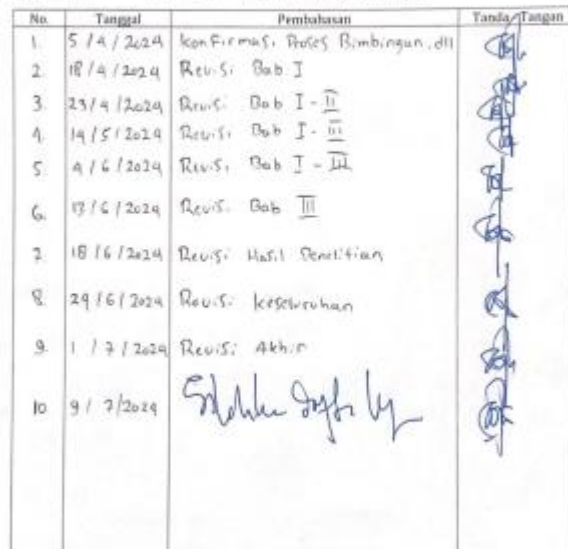 No. Tanggal Pembahasan Tanda Tangan
1. 5 / 4 / 2024 Konfirmasi Proses Bimbingan, dll
2. 18 / 4 / 2024 Revisi Bab I
3. 23 / 4 / 2024 Revisi Bab I - II
4. 14 / 5 / 2024 Revisi Bab I - III
5. 4 / 6 / 2024 Revisi Bab I - III
6. 13 / 6 / 2024 Revisi Bab III
7. 18 / 6 / 2024 Revisi Hasil Penelitian
8. 24 / 6 / 2024 Revisi Keseluruhan
9. 1 / 7 / 2024 Revisi Akhir
10 9 / 7 / 2024